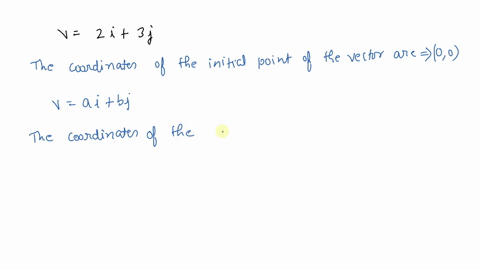 v = 2i + 3j
The coordinates of the initial point of the vector are ⇒ (0,0)
v = ai + bj
The coordinates of the